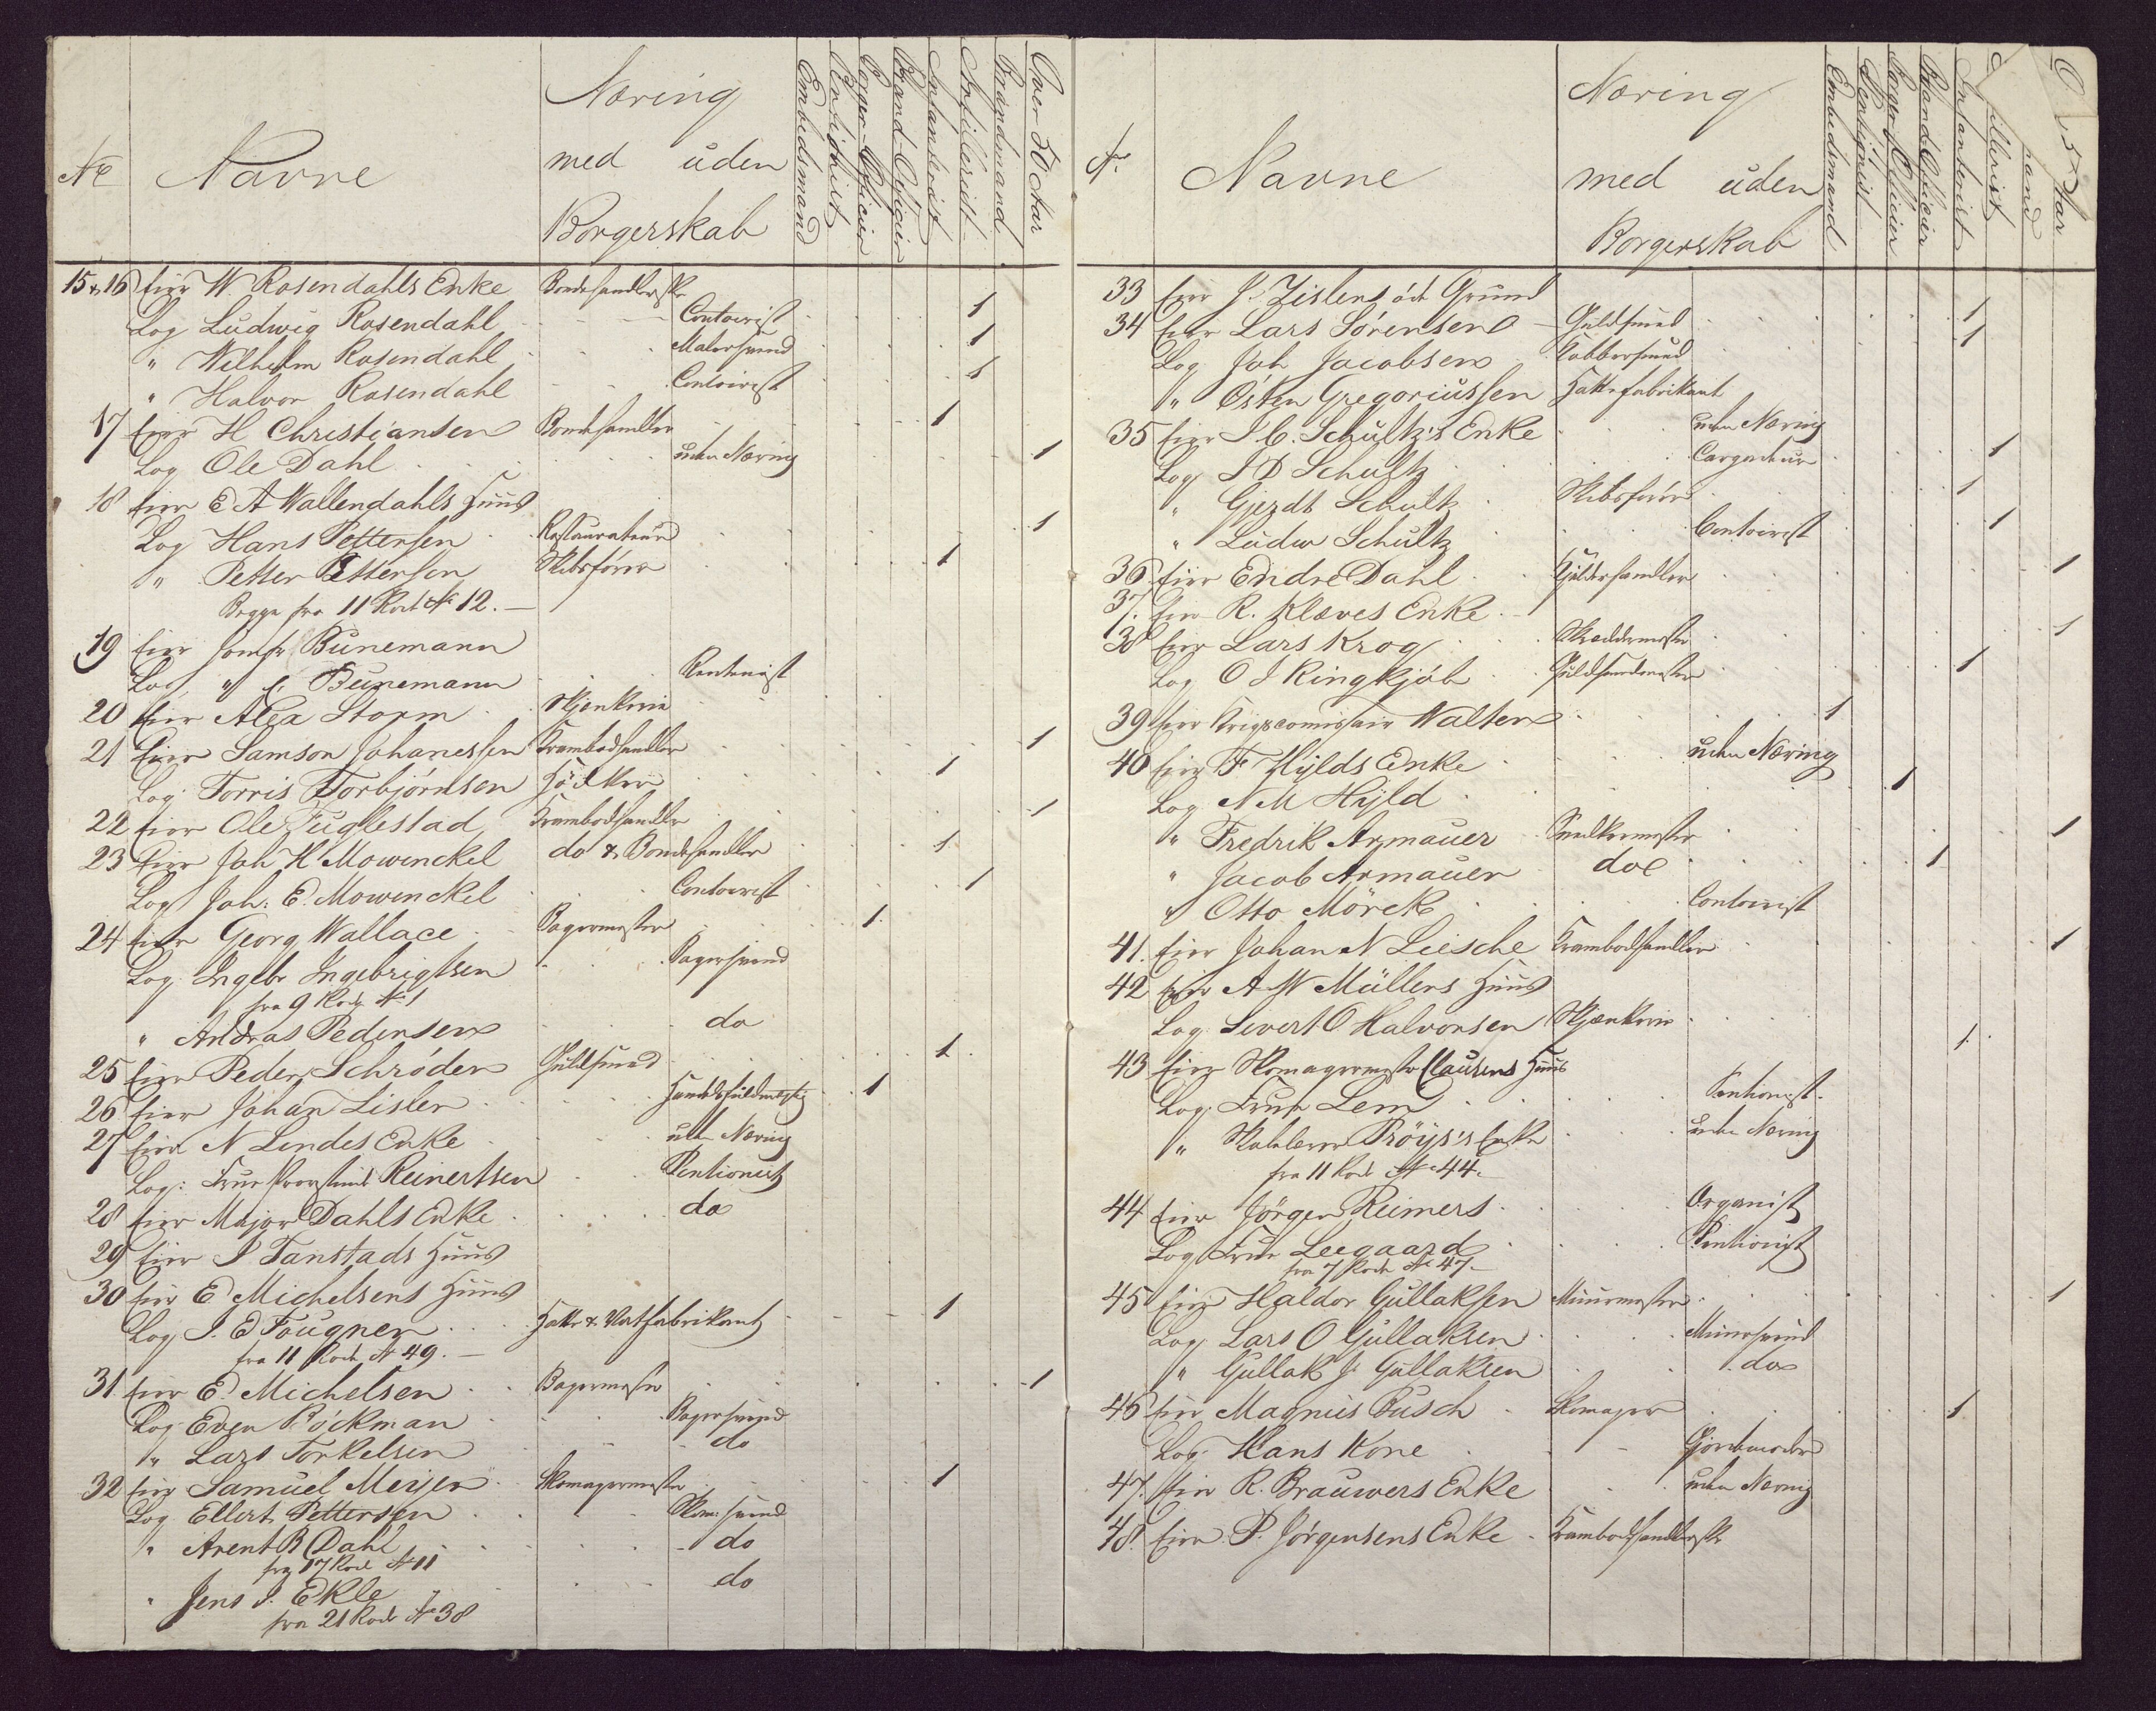 Næring
med uden
Borgerskab
Embedsmand
Pentionist
Borger-Officier
Brand-Officier
Infanterist
Artillerist
Brandmand
Over 50 Aar
No Navne
15 & 16 Eier W. Rosendahls Enke Bondehandlerske
Log Ludwig Rosendahl Contoirist 1
" Wilhelm Rosendahl Malersvend 1
" Halvor Rosendahl Contoirist 1
17 Eier H Christiansen Bondehandler 1
Log Ole Dahl uden Næring 1
18 Eier E A Wallendahls Huus
Log Hans Pettersen Restaurateur 1
" Petter Pettersen Skibsfører 1
Begge fra 11 Rode No 12.
19 Eier Jomfr Bünemann
Log " C. Bünemann Rentenist
20 Eier Alex Storm Skjenkerie
21 Eier Samson Johanessen Krambodhandler 1
Log. Torris Torbjørnsen Høker 1
22 Eier Ole Fuglestad Krambodhandler 1
23 Eier Joh H Mowinckel do & Bondehandler 1
Log Joh: E. Mowinckel Contoirist 1
24 Eier Georg Wallace Bagermester 1
Log. Ingebr Ingebrigtsen Bagersvend
fra 9 Rode No 1
" Andras Pedersen do
25 Eier Peder Schrøder Guldsmed 1
26 Eier Johan Lisler 1
27 Eier N Lindes Enke uden Næring
Log: Frue Reinertsen Pentionist
28 Eier Major Dahls Enke do
29 Eier J Tanstads Huus
30 Eier E Michelsens Huus
Log J. E Fougner Hatte & Vatfabrikant 1
fra 11 Rode No 49.
31. Eier E. Michelsen Bagermester 1
Log Even Bøckman Bagersvend
" Lars Torkelsen do
32 Eier Samuel Meijer Skomagermester 1
Log Ellert Pettersen Skom: svend
" Arent B Dahl do
fra 17 Rode No 11
" Jens J. Ekle do
fra 21 Rode No 38
Næring
med uden
Borgerskab
Embedsmand
Pentionist
Borger Officier
Brand Officier
Infanterist
No Navne
33 Eier J. Zislens øde Grund
34 Eier Lars Sørensen Guldsmed 1
Log Joh Jacobsen Kobbersmed 1
" Østen Gregoriussen Hattefabrikant
35 Eier J C. Schultz's Enke uden Næring
Log J D Schultz Cargadeur 1
" Gjerdt Schultz Skibsfører 1
" Ludw Schultz Contoirist 1
36. Eier Endre Dahl Kjelderhandler 1
37. Eier R. Klæves Enke
38 Eier Lars Krog Skreddermester 1
Log O J Ringkjøb Guldsmedmester 1
39 Eier Krigscomissair Walter 1
40 Eier F Hylds Enke uden Næring
Log N M Hyld 1
" Fredrik Armauer Snedkermester 1
" Jacob Armauer do 1
" Otto Mørck Contoirist
41. Eier Johan N Liesche Krambodhandler 1
42 Eier A W Müllers Huus
Log. Sivert O Halvorsen Skjænkerie 1.
43 Eier Skomagermester Clausens Huus
Log. Frue Lem Pentionist.
" Prøys's Enke uden Næring
fra 11 Rode No 44.
44 Eier Jørgen Reimers Organist
Log Frue Leegaard Pentionist
fra 7 Rode No 47.
45 Eier Haldor Gullaksen Muurmester 1
Log Lars O Gullaksen Muursvend
" Gullak J. Gullaksen do
46 Eier Magnus Busch Skomager 1
Log. Hans Kone Gjordemoder
47. Eier R. Brauwers Enke uden Næring
48. Eier P. Jørgensens Enke Krambodhandlerske